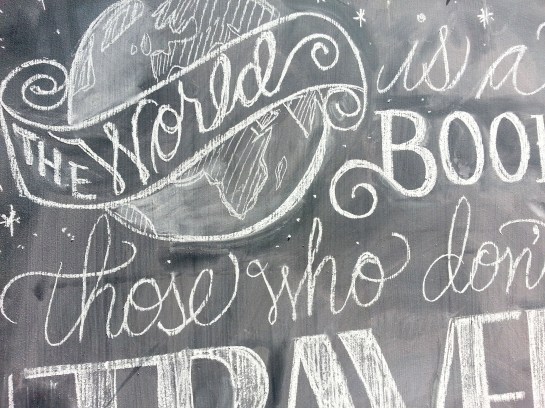 THE World is a
BOOK
those who don't
TRAVEL